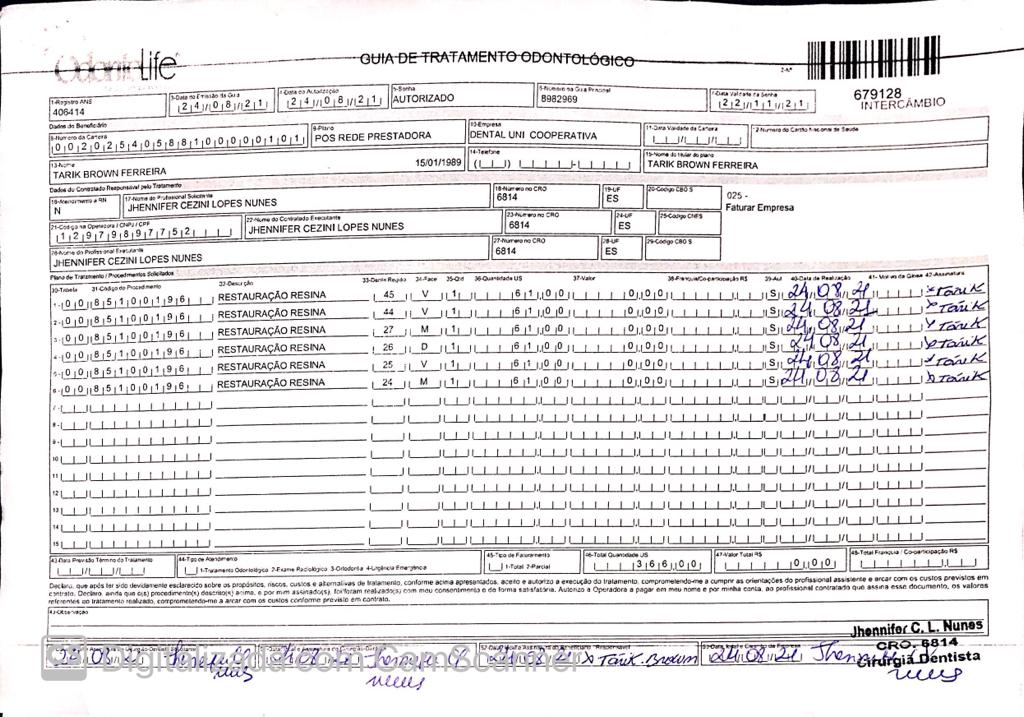 OdontoLife
GUIA DE TRATAMENTO ODONTOLÓGICO
2-Nº
679128
INTERCÂMBIO
1-Registro ANS
406414
3-Data de Emissão da Guia
24/08/21
4-Data da Autorização
24/08/21
5-Senha
AUTORIZADO
6-Número da Guia Principal
8982969
7-Data Validade da Senha
22/11/21
Dados do Beneficiário
8-Número da Carteira
00202540588100000101
9-Plano
POS REDE PRESTADORA
10-Empresa
DENTAL UNI COOPERATIVA
11-Data Validade da Carteira
12-Número do Cartão Nacional de Saúde
13-Nome
TARIK BROWN FERREIRA
15/01/1989
14-Telefone
15-Nome do titular do plano
TARIK BROWN FERREIRA
Dados do Contratado Responsável pelo Tratamento
16-Atendimento a RN
N
17-Nome do Profissional Solicitante
JHENNIFER CEZINI LOPES NUNES
18-Número no CRO
6814
19-UF
ES
20-Código CBO S
025 -
Faturar Empresa
21-Código na Operadora / CNPJ / CPF
12979897752
22-Nome do Contratado Executante
JHENNIFER CEZINI LOPES NUNES
23-Número no CRO
6814
24-UF
ES
25-Código CNES
26-Nome do Profissional Executante
JHENNIFER CEZINI LOPES NUNES
27-Número no CRO
6814
28-UF
ES
29-Código CBO S
Plano de Tratamento / Procedimentos Solicitados
30-Tabela 31-Código do Procedimento 32-Descrição 33-Dente Região 34-Face 35-Qtd 36-Quantidade US 37-Valor 38-Franquia/Co-participação R$ 39-Aut 40-Data de Realização 41- Motivo da Glosa 42-Assinatura
1- 00 85100196 RESTAURAÇÃO RESINA 45 V 1 61,00 0,00 S 24/08/21 x Tarik
2- 00 85100196 RESTAURAÇÃO RESINA 44 V 1 61,00 0,00 S 24/08/21 x Tarik
3- 00 85100196 RESTAURAÇÃO RESINA 27 M 1 61,00 0,00 S 24/08/21 x Tarik
4- 00 85100196 RESTAURAÇÃO RESINA 26 D 1 61,00 0,00 S 24/08/21 x Tarik
5- 00 85100196 RESTAURAÇÃO RESINA 25 V 1 61,00 0,00 S 24/08/21 x Tarik
6- 00 85100196 RESTAURAÇÃO RESINA 24 M 1 61,00 0,00 S 24/08/21 x Tarik
7-
8-
9-
10
11
12
13
14
15
43-Data Previsão Término do Tratamento
44-Tipo de Atendimento
1-Tratamento Odontológico 2-Exame Radiológico 3-Ortodontia 4-Urgência Emergência
45-Tipo de Faturamento
1-Total 2-Parcial
46-Total Quantidade US
366,00
47-Valor Total R$
0,00
48-Total Franquia / Co-participação R$
Declaro, que após ter sido devidamente esclarecido sobre os propósitos, riscos, custos e alternativas de tratamento, conforme acima apresentados, aceito e autorizo a execução do tratamento, comprometendo-me a cumprir as orientações do profissional assistente e arcar com os custos previstos em
contrato. Declaro, ainda que o(s) procedimento(s) descrito(s) acima, e por mim assinado(s), foi/foram realizado(s) com meu consentimento e de forma satisfatória. Autorizo a Operadora a pagar em meu nome e por minha conta, ao profissional contratado que assina esse documento, os valores
referentes ao tratamento realizado, comprometendo-me a arcar com os custos conforme previsto em contrato.
49-Observação
Jhennifer C. L. Nunes
CRO. 6814
Cirurgiã Dentista
24/08/21 x Tarik Brown 24/08/21
Digitalizada com CamScanner